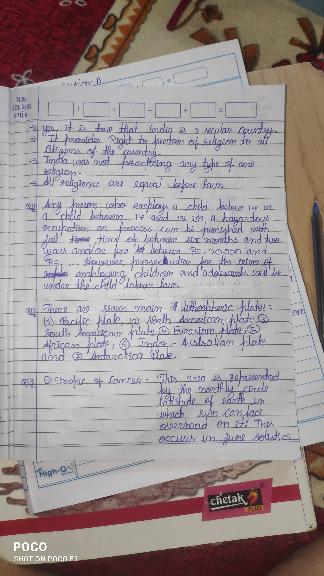 -> yes, it is true that India is a secular country.
-> It provides Right to freedom of religion to all
citizens of the country.
-> India was not practicing any type of one
religion.
-> All religions are equal before law.
Any person who employ a child below 14 or
a child between 14 and 18 in a hazardous
occupation or process can be punished with
jail time of between six months and two
years and/or fine between Rs. 20,000 and
employing children and adolescents will be
under the child labour law.
There are seven main lithospheric plates:-
(1) Pacific plate, (2) North American plate (3)
South American plate (4) Eurasian plate, (5)
African plate, (6) Indo - Australian plate
and (7) Antarctica Plate.
Tropic of Cancer - This area is represented
by the northly circle
latitude of earth in
which sun can face
overhead on it. This
occurs in june solstice
High-Q
chetak
PLUS
POCO
SHOT ON POCO F1